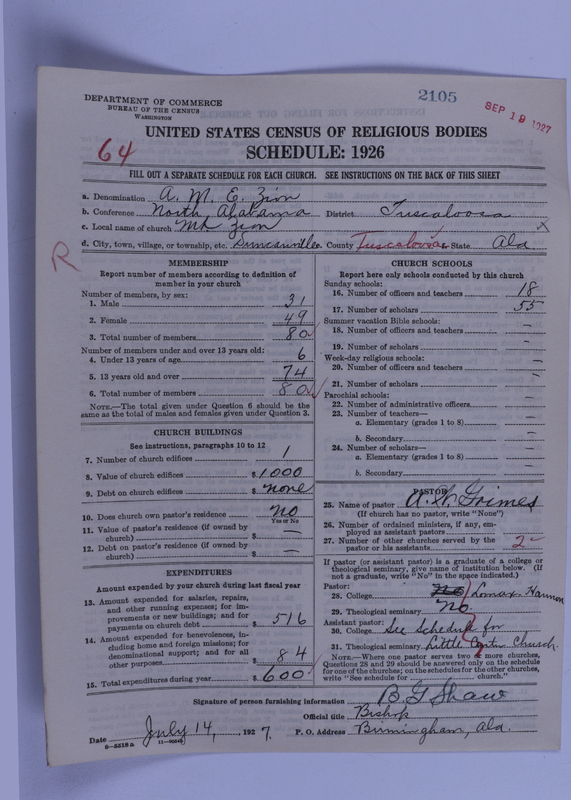 DEPARTMENT OF COMMERCE
BUREAU OF THE CENSUS
WASHINGTON
2105
SEP 19 1927
64
UNITED STATES CENSUS OF RELIGIOUS BODIES
SCHEDULE: 1926
FILL OUT A SEPARATE SCHEDULE FOR EACH CHURCH. SEE INSTRUCTIONS ON THE BACK OF THIS SHEET
a. Denomination A. M. E. Zion
b. Conference North Alabama District Tuscaloosa
c. Local name of church Mt Zion X
d. City, town, village, or township, etc. Duncanville County Tuscaloosa State Ala
R
MEMBERSHIP
Report number of members according to definition of
member in your church
Number of members, by sex:
1. Male 31
2. Female 49
3. Total number of members 80
Number of members under and over 13 years old:
4. Under 13 years of age 6
5. 13 years old and over 74
6. Total number of members 80
NOTE.—The total given under Question 6 should be the
same as the total of males and females given under Question 3.
CHURCH BUILDINGS
See instructions, paragraphs 10 to 12
7. Number of church edifices 1
8. Value of church edifices $1000
9. Debt on church edifices $ none
10. Does church own pastor's residence? no
Yes or No
11. Value of pastor's residence (if owned by
church) $ —
12. Debt on pastor's residence (if owned by
church) $ —
EXPENDITURES
Amount expended by your church during last fiscal year
13. Amount expended for salaries, repairs,
and other running expenses; for im-
provements or new buildings; and for
payments on church debt $ 516
14. Amount expended for benevolences, in-
cluding home and foreign missions; for
denominational support; and for all
other purposes $ 84
15. Total expenditures during year $600
CHURCH SCHOOLS
Report here only schools conducted by this church
Sunday schools:
16. Number of officers and teachers 18
17. Number of scholars 55
Summer vacation Bible schools:
18. Number of officers and teachers —
19. Number of scholars —
Week-day religious schools:
20. Number of officers and teachers —
21. Number of scholars —
Parochial schools:
22. Number of administrative officers —
23. Number of teachers—
a. Elementary (grades 1 to 8) —
b. Secondary —
24. Number of scholars—
a. Elementary (grades 1 to 8) —
b. Secondary —
PASTOR
25. Name of pastor A. W. Grimes
(If church has no pastor, write "None")
26. Number of ordained ministers, if any, em-
ployed as assistant pastors
27. Number of other churches served by the
pastor or his assistants 2
If pastor (or assistant pastor) is a graduate of a college or
theological seminary, give name of institution below. (If
not a graduate, write "No" in the space indicated.)
Pastor:
28. College Lomax Hannon
29. Theological seminary No
Assistant pastor:
30. College See Schedule for
31. Theological seminary Little Church
NOTE.—Where one pastor serves two or more churches,
Questions 28 and 29 should be answered only on the schedule
for one of the churches; on the schedules for the other churches,
write "See schedule for church."
Signature of person furnishing information B. G Shaw
Official title Bishop
Date July 14, 1927. P. O. Address Birmingham, Ala.